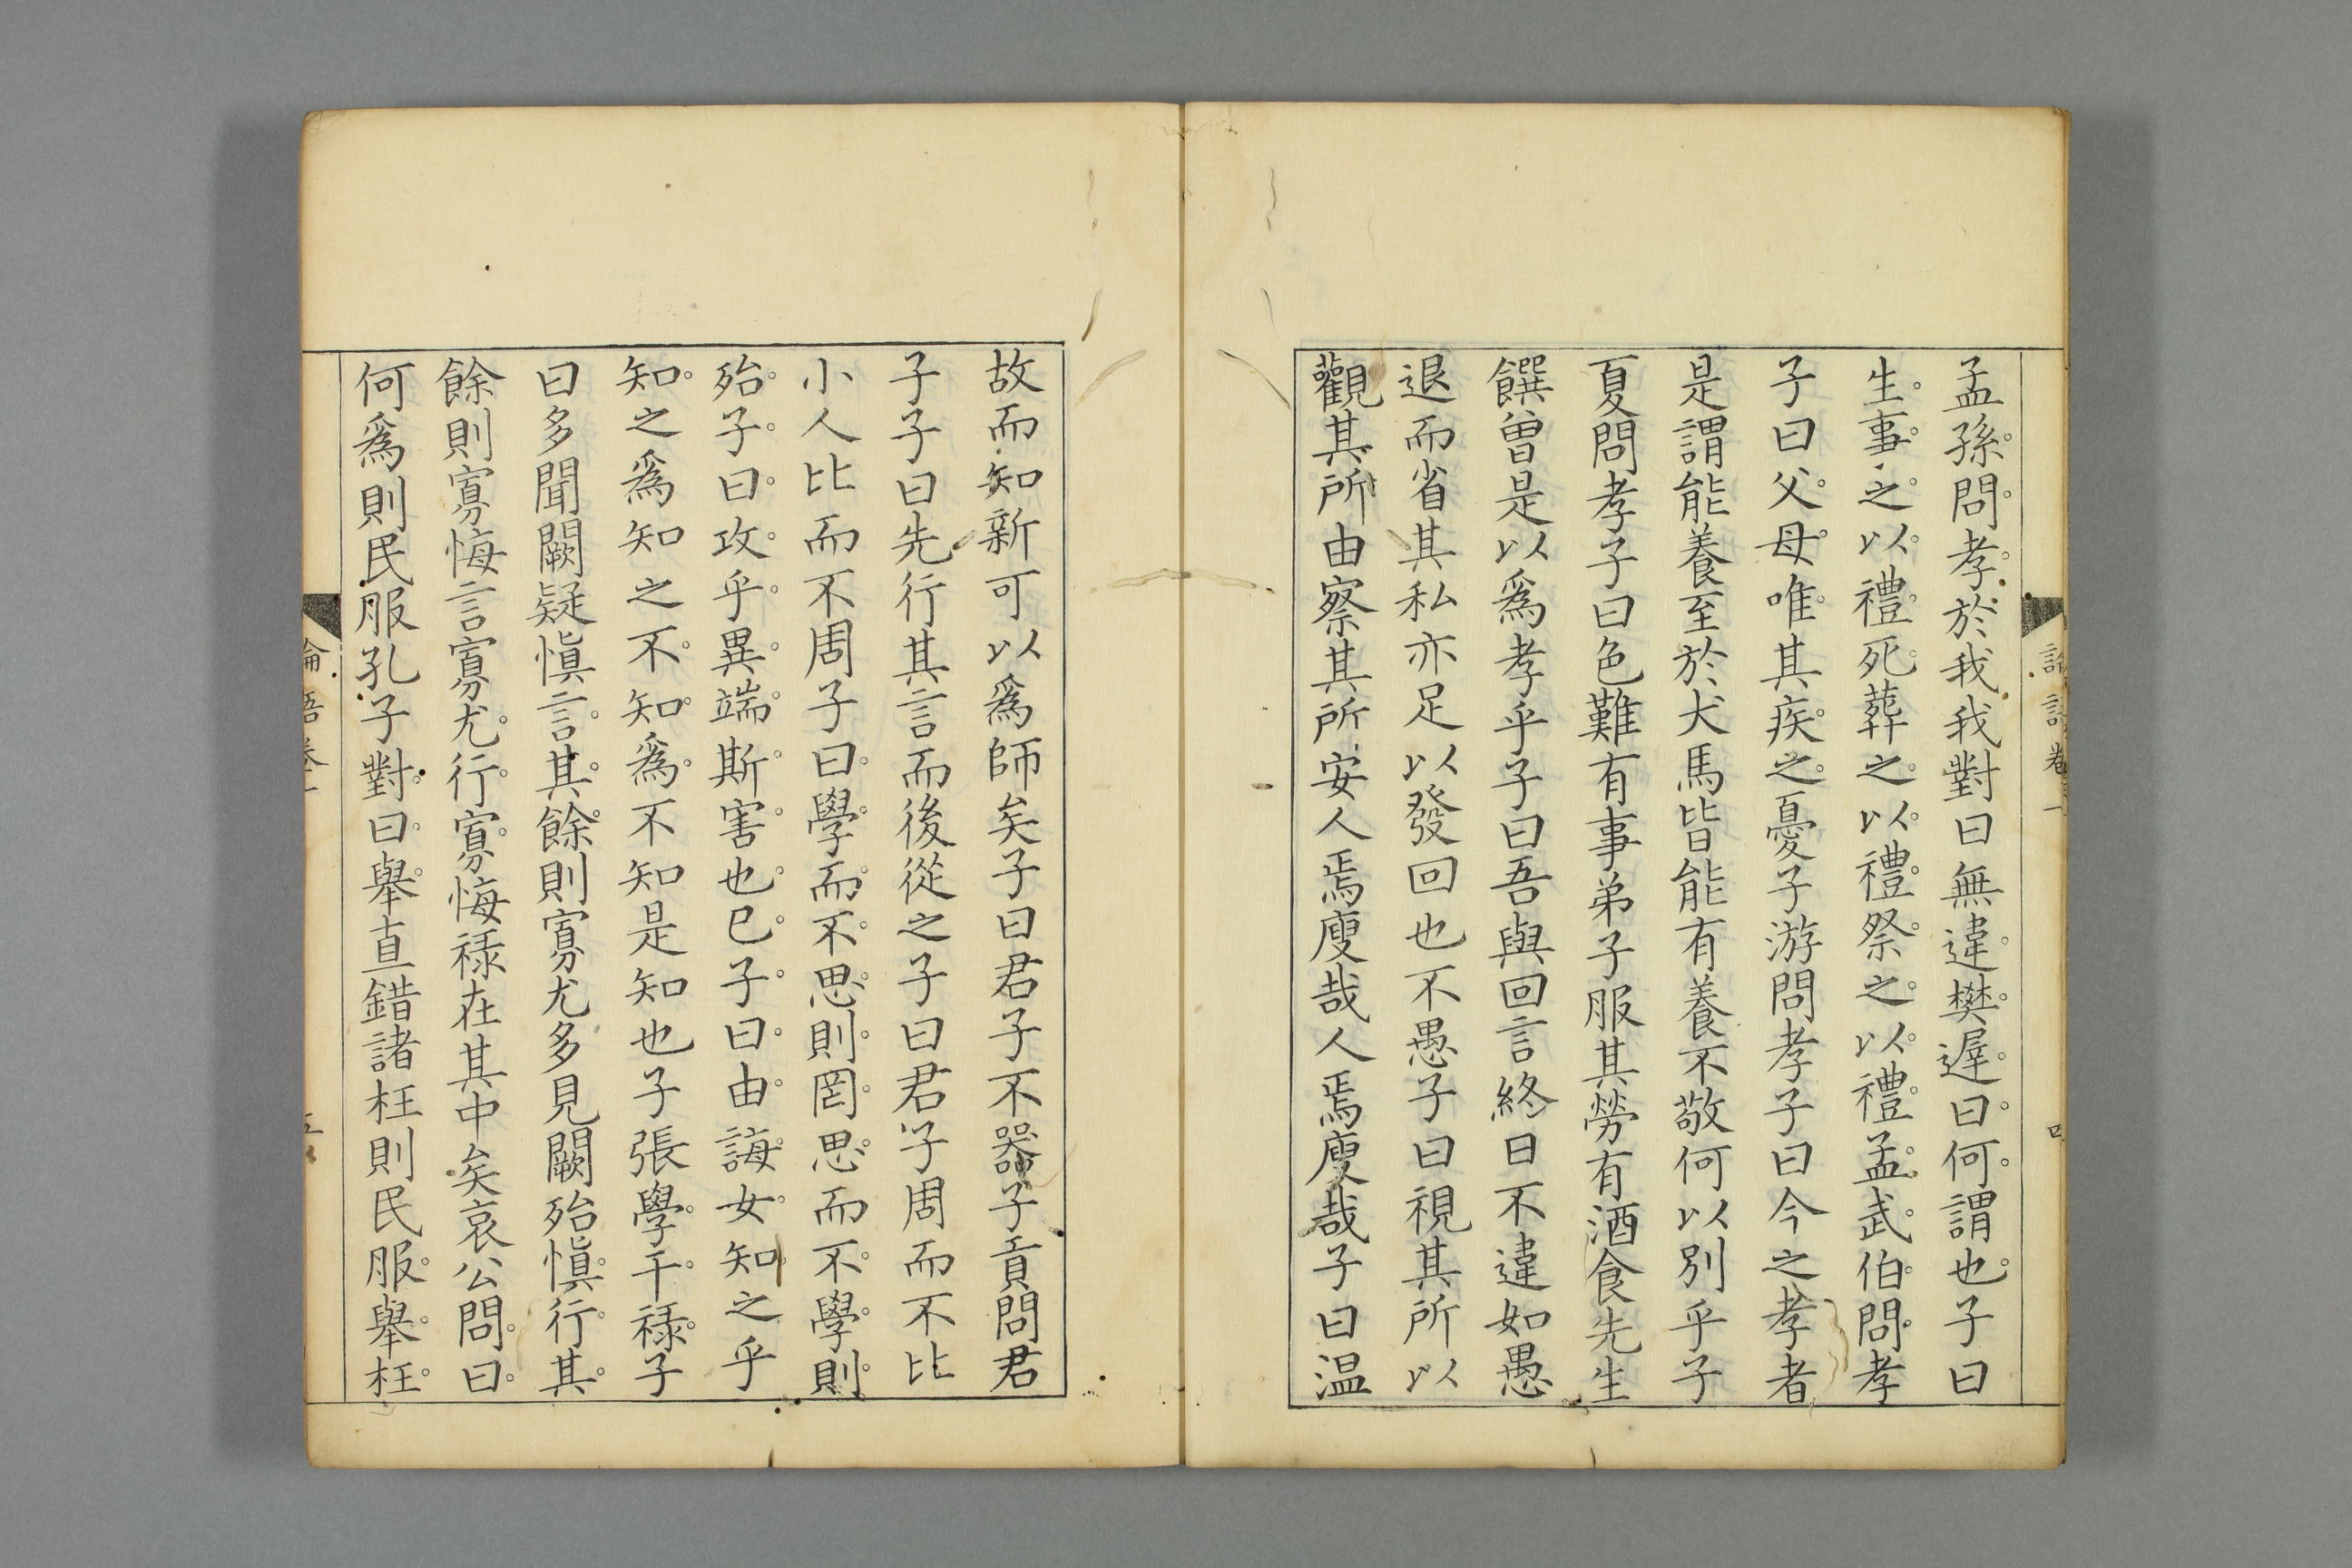 論語卷一
孟孫問孝於我我對曰無違樊遅曰何謂也子曰
生事之以禮死葬之以禮祭之以禮孟武伯問孝
子曰父母唯其疾之憂子游問孝子曰今之孝者
是謂能養至於犬馬皆能有養不敬何以別乎子
夏問孝子曰色難有事弟子服其勞有酒食先生
饌曽是以爲孝乎子曰吾與回言終日不違如愚
退而省其私亦足以發回也不愚子曰視其所以
觀其所由察其所安人焉廋哉人焉廋哉子曰温
故而知新可以爲師矣子曰君子不器子貢問君
子子曰先行其言而後從之子曰君子周而不比
小人比而不周子曰學而不思則罔思而不學則
殆子曰攻乎異端斯害也已子曰由誨女知之乎
知之爲知之不知爲不知是知也子張學干祿子
曰多聞闕疑愼言其餘則寡尤多見闕殆愼行其
餘則寡悔言寡尤行寡悔祿在其中矣哀公問曰
何爲則民服孔子對曰舉直錯諸枉則民服舉枉
論語卷一